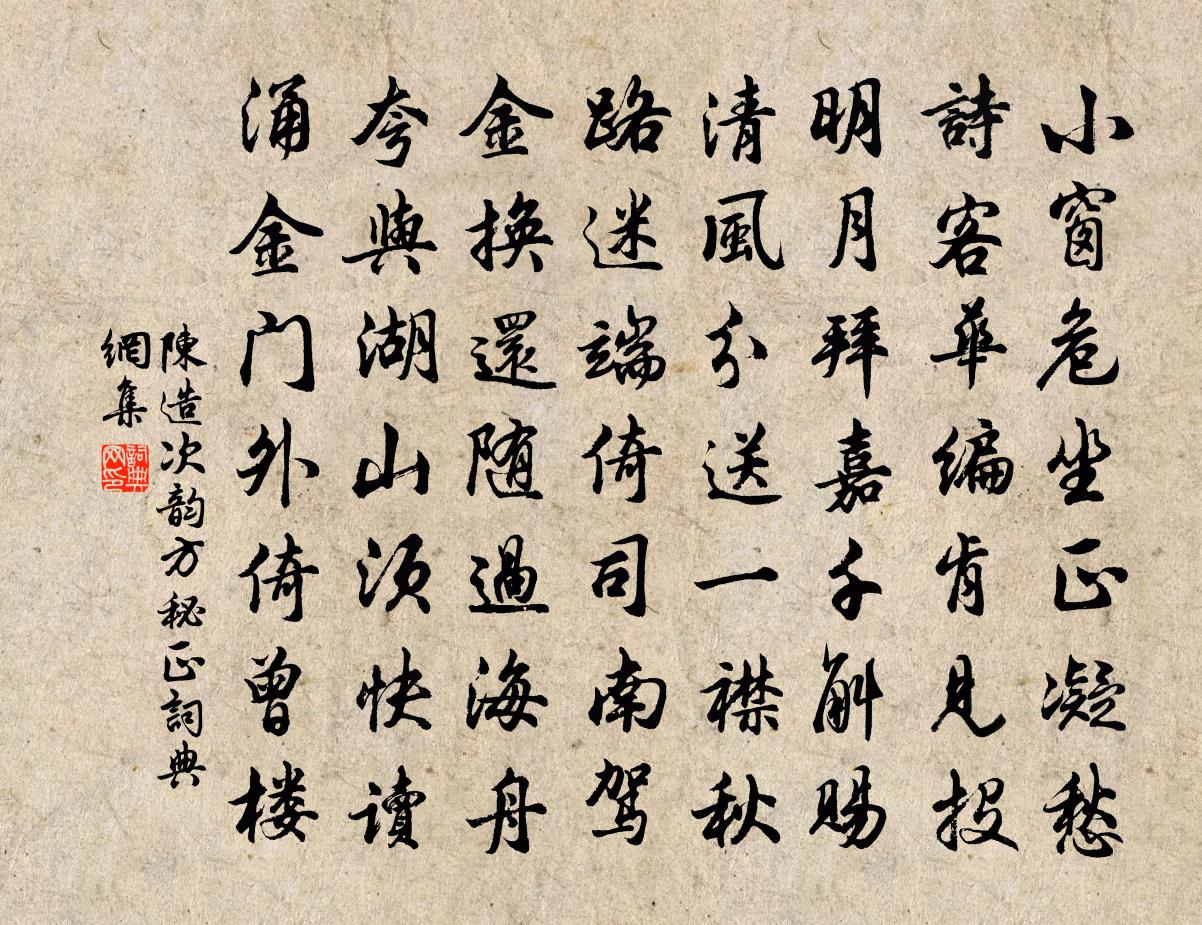 小窗危坐正凝愁
詩客華編肯見投
明月拜嘉千斛賜
清風分送一襟秋
路迷端倚司南駕
金換還随過海舟
夸與湖山须快讀
涌金门外倚曾楼
陳造次韵方秘正詞典
網集
詞典网印